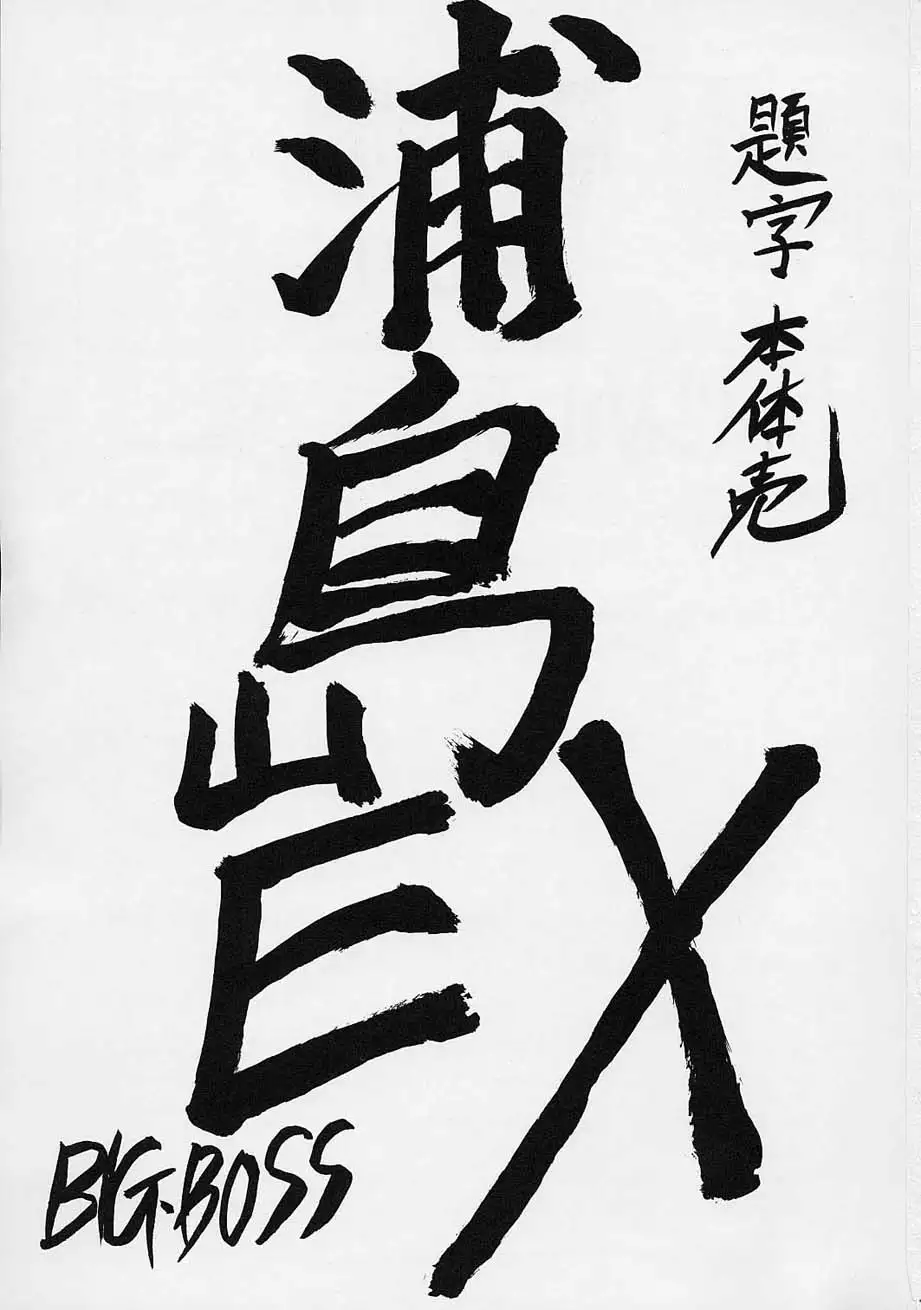 題字 本体売
浦島EX
BIG.BOSS